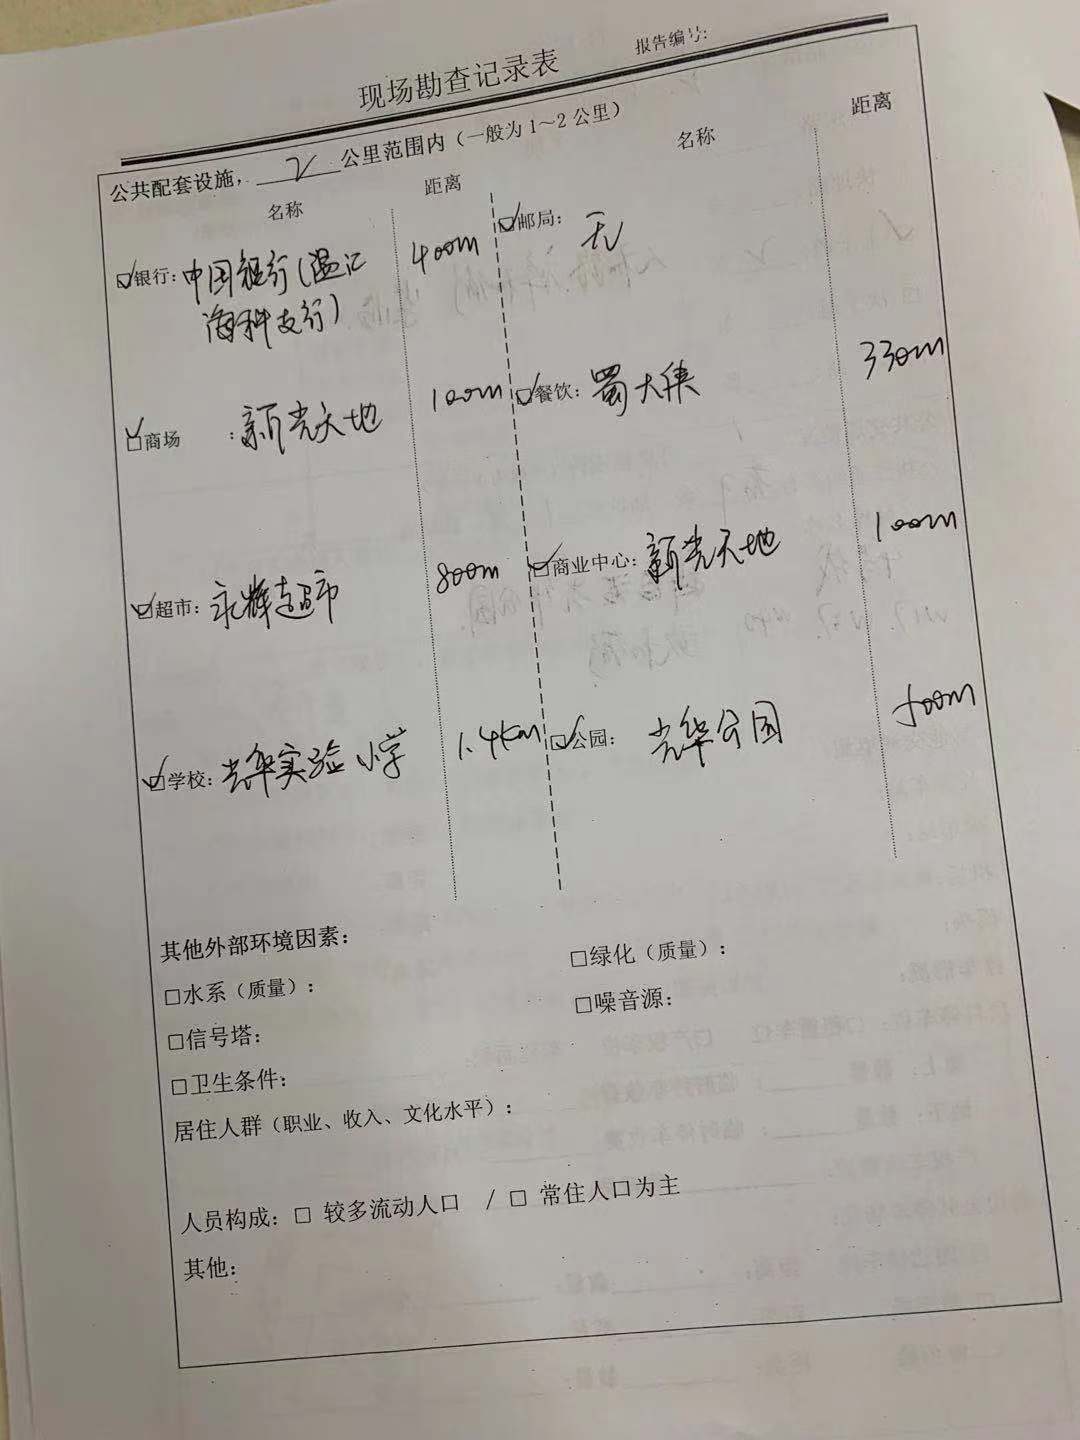 现场勘查记录表
报告编号:
公共配套设施，2公里范围内（一般为1~2公里）
名称 距离 名称 距离
银行: 中国银行(温江海科支行) 400m
邮局: 无
商场 : 新光天地 100m
餐饮: 蜀大侠 330m
超市: 永辉超市 800m
商业中心: 新光天地 100m
学校: 光华实验小学 1.4km
公园: 光华公园 500m
其他外部环境因素:
□水系（质量）: □绿化（质量）:
□信号塔: □噪音源:
□卫生条件:
居住人群（职业、收入、文化水平）:
人员构成: □ 较多流动人口 / □ 常住人口为主
其他: